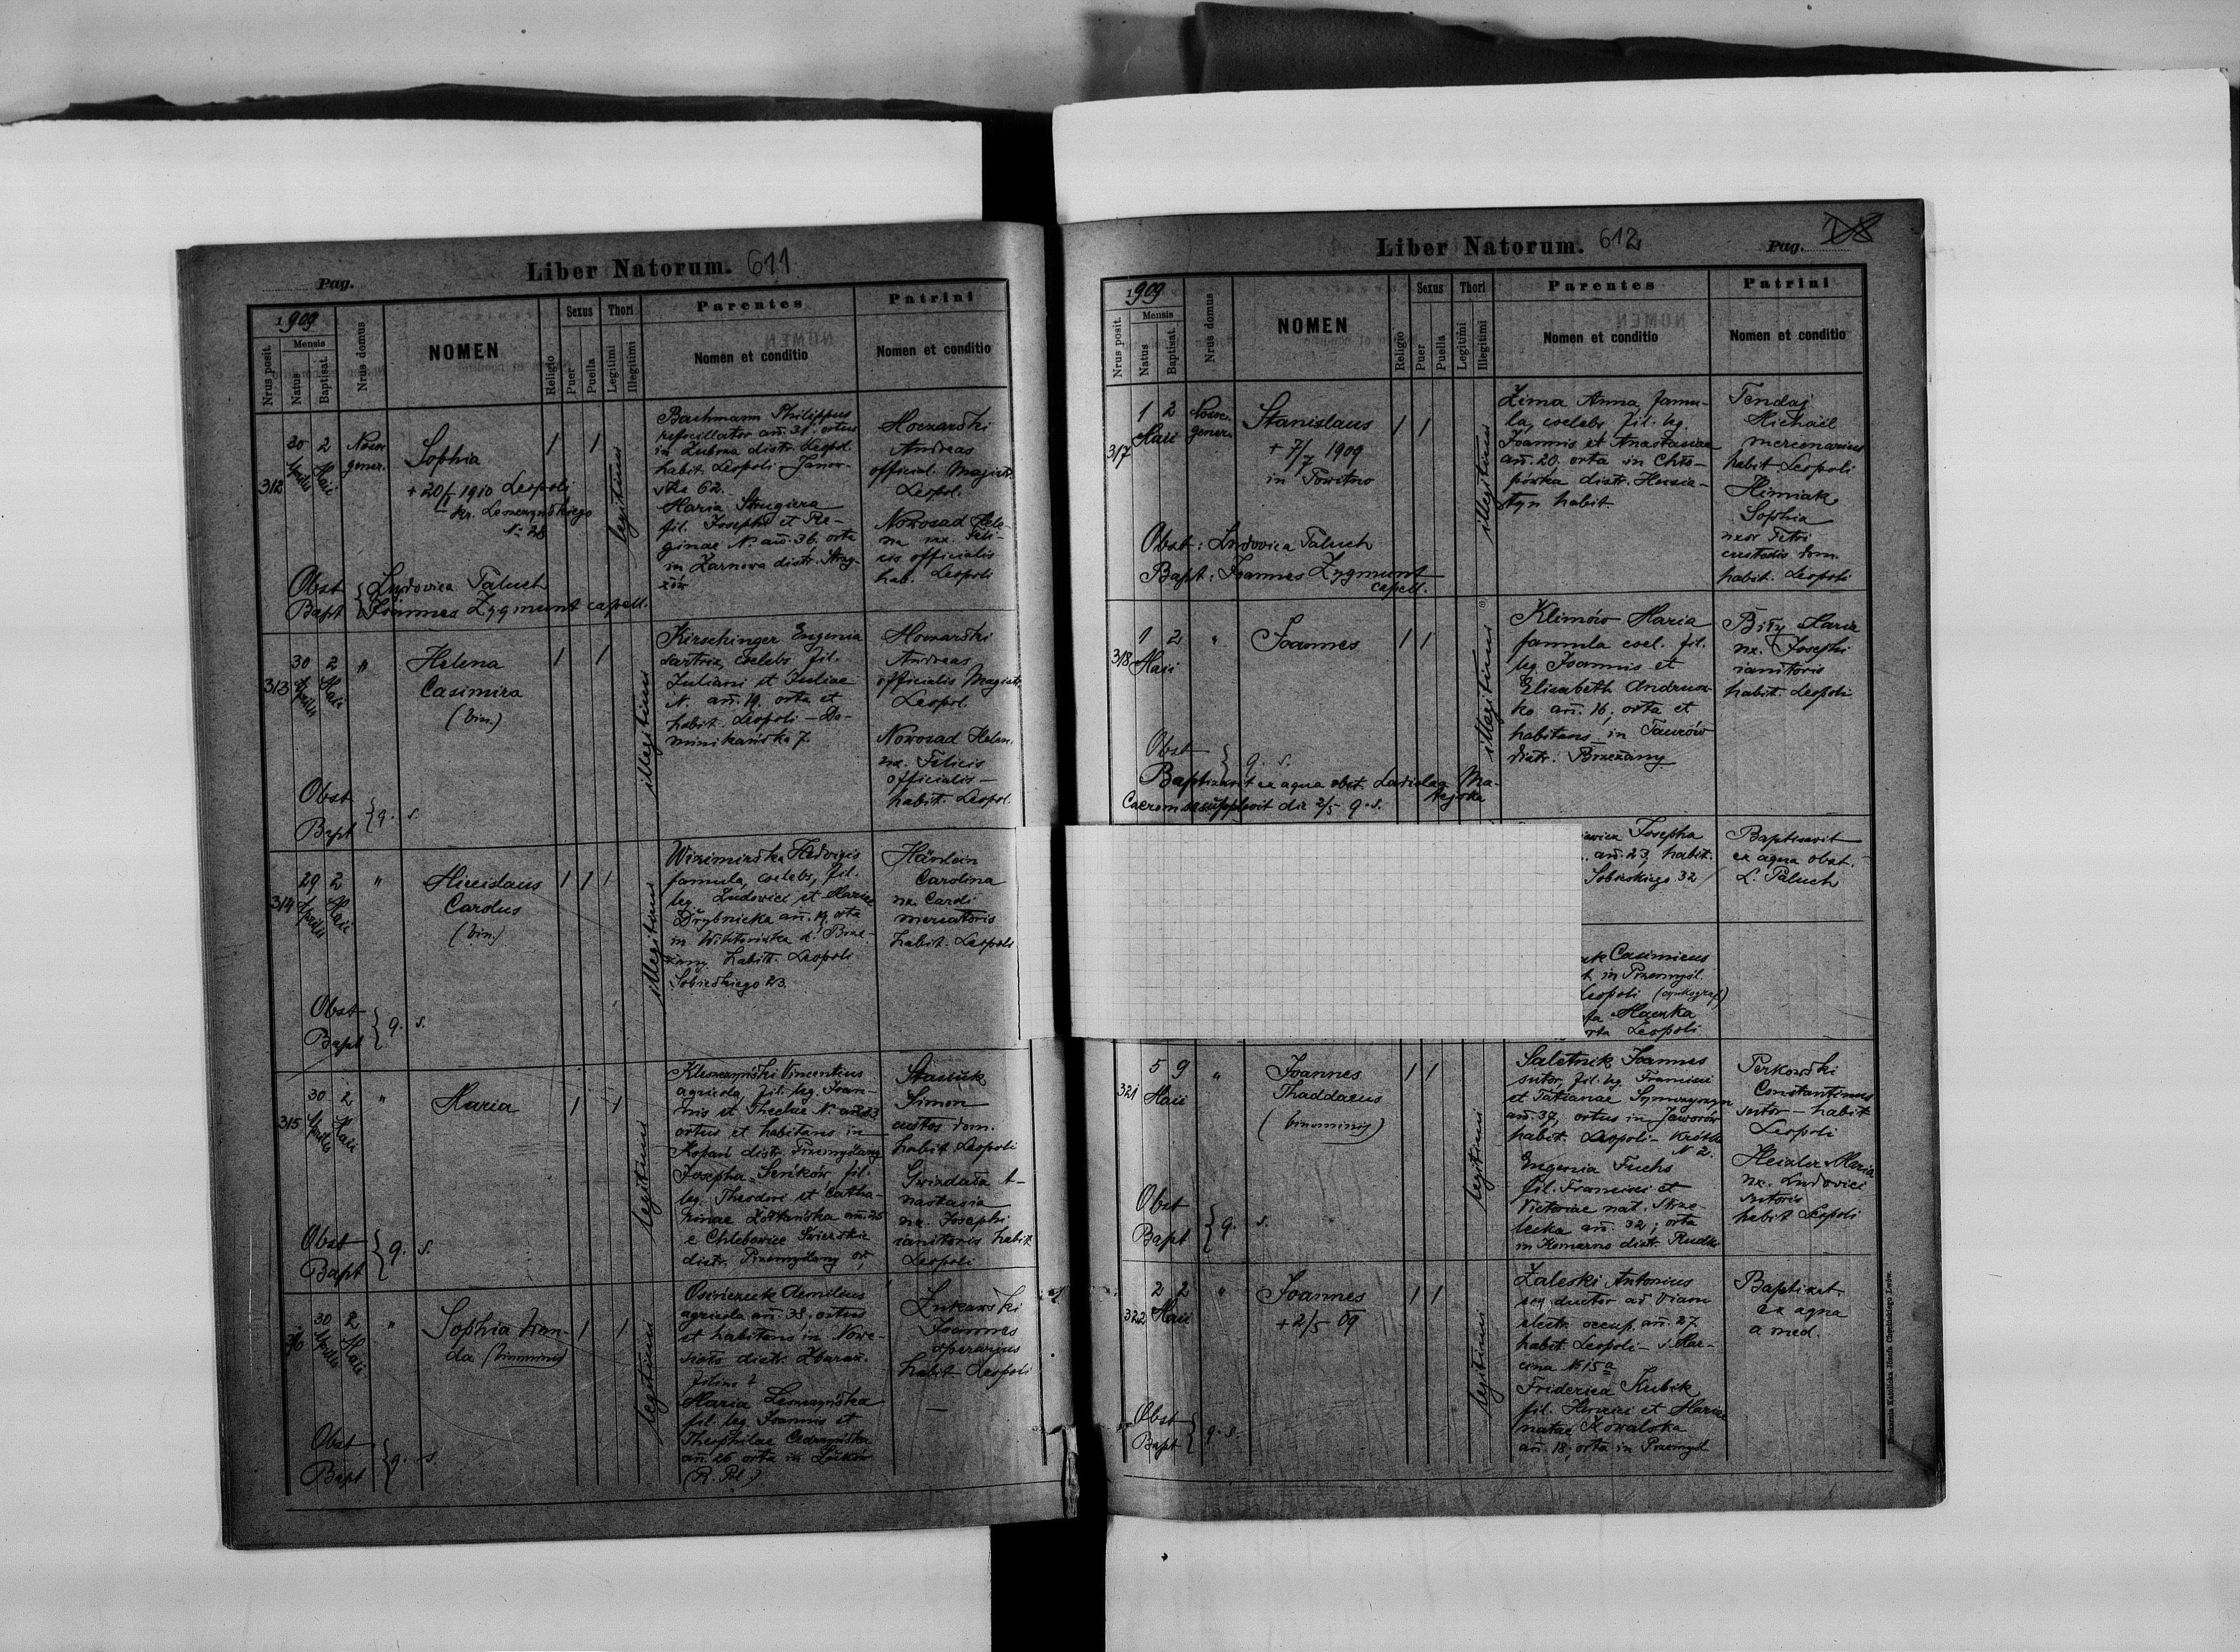 Pag.
Liber Natorum. 611
1909
Nrus posit.
Mensis
Natus
Baptisat.
Nrus domus
NOMEN
Religio
Sexus
Puer
Puella
Thori
Legitimi
Illegitimi
Parentes
Nomen et conditio
Patrini
Nomen et conditio
312
30 Aprilis
2 Maii
Sophia
+ 20/5 1910 Leopoli
N 28
1 1
legitimi
Bachmann Philippus
ann. 31. ortus
in Zubrza distr. Leopol.
habit. Leopoli Janow-
ska 62.
Maria Strugiera
fil. Josephi et Re-
ginae N. ann. 36. orta
in Żarnowa distr. Strzy-
żów
Andreas
official. Magistr.
Leopol.
Nowosad Hele-
na ux. Feli-
cis officialis
hab. Leopoli
Obst Ludovica Paluch
Bapt Joannes Zygmunt capell.
313
30 Aprilis
2 Maii
"
Helena
Casimira
(bin.)
1 1
illegitimi
Kirschinger Eugenia
sartrix, coelebs fil.
Juliani et Juliae
N. ann. 19. orta et
habit. Leopoli - Do-
minikańska 7.
Andreas
officialis Magistr.
Leopol.
Nowosad Helen.
ux. Felicis
officialis -
habit. Leopol.
Obst
Bapt } q. s.
314
29 Aprilis
2 Maii
"
Miecislaus
Carolus
(bin.)
1 1 1
illegitimi
Hedvigis
famula, coelebs, fil.
leg. Ludovici et Mariae
ann. 19. orta
in d. Brze-
żany habit. Leopoli
Sobieskiego 23.
Carolina
ux. Caroli
mercatoris
habit. Leopoli
Obst
Bapt } q. s.
315
30 Aprilis
2 Maii
"
Maria
1 1
legitimi
Vincentius
agricola, fil. leg. Joan-
nis et Theclae N. ann. 33
ortus et habitans in
distr. Przemyślany
Josepha Seńków, fil.
leg. Theodori et Catha-
rinae Żółtańska ann. 25
e Chlebowice Świerskie
distr. Przemyślany or.,
Stasiuk
Simon
custos dom.
habit Leopoli
Gwizdała A-
nastasia
ux. Josephi
ianitoris habit
Leopoli
Obst
Bapt } q. s.
316
30 Aprilis
2 Maii
"
Sophia Wan-
da (binominis)
1 1
legitimi
Aemilius
agricola ann. 38. ortus
et habitans in Nowe-
siolo distr. Zbaraż.
Maria Leszczyńska
fil. leg. Joannis et
Theophilae
ann. 26 orta in
(R. Pol.)
Żukowski
Joannes
operarius
habit Leopoli
Obst
Bapt } q. s.
Liber Natorum. 612
Pag.
1909
Nrus posit.
Mensis
Natus
Baptisat.
Nrus domus
NOMEN
Religio
Sexus
Puer
Puella
Thori
Legitimi
Illegitimi
Parentes
Nomen et conditio
Patrini
Nomen et conditio
317
1 Maii
2
Stanislaus
+ 7/7 1909
in Powitno
1 1
illegitimi
Zima Anna famu-
la, coelebs fil. leg.
Joannis et Anastasiae
ann. 20. orta in Chło-
pówka distr. Husia-
tyn habit
Tendaj
Michaël
mercenarius
habit Leopoli
Himiak
Sophia
uxor Petri
custodis dom.
habit. Leopoli
Obst: Ludovica Paluch
Bapt: Joannes Zygmunt
capell.
318
1 Maii
2
"
Joannes
1 1
illegitimi
Klimów Maria
famula coel. fil.
leg Joannis et
Elisabeth Andrusz-
ko ann. 16; orta et
habitans in Taurów
distr. Brzeżany
Biły Maria
ux. Josephi
ianitoris
habit. Leopoli
Obst } q. s.
Baptizavit ex aqua obst. Ladislaa Ma-
tejska
Caerem supplevit die 2/5 q. s.
Josepha
ann. 23, habit.
Sobieskiego 32
Baptisavit
ex aqua obst.
L. Paluch
Casimirus
in Przemyśl
Leopoli (cynkograf)
Leopoli
321
5 Maii
9
"
Joannes
Thaddaeus
(binominis)
1 1
legitimi
Saletnik Joannes
sutor, fil. leg. Francisci
et Tatianae
ann. 37, ortus in Jaworów
habit. Leopoli - Krótka
N 2.
Eugenia Fuchs
fil. Francisci et
Victoriae nat. Strze-
lecka ann. 32; orta
in Komarno distr. Rudki
Perkowski
Constantinus
sutor - habit
Leopoli
Heizler Maria
ux. Ludovici
sutoris
habit Leopoli
Obst
Bapt } q. s.
322
2 Maii
2
"
Joannes
+ 2/5 09
1 1
legitimi
Zaleski Antonius
ductor ad viam
electr. occup. ann. 27.
habit. Leopoli - s. Mar-
cina N 15a
Friderica Kubik
fil. Henrici et Mariae
natae Kowalska
ann. 18; orta in Przemyśl
Baptizat
ex aqua
a med.
Obst
Bapt } q. s.